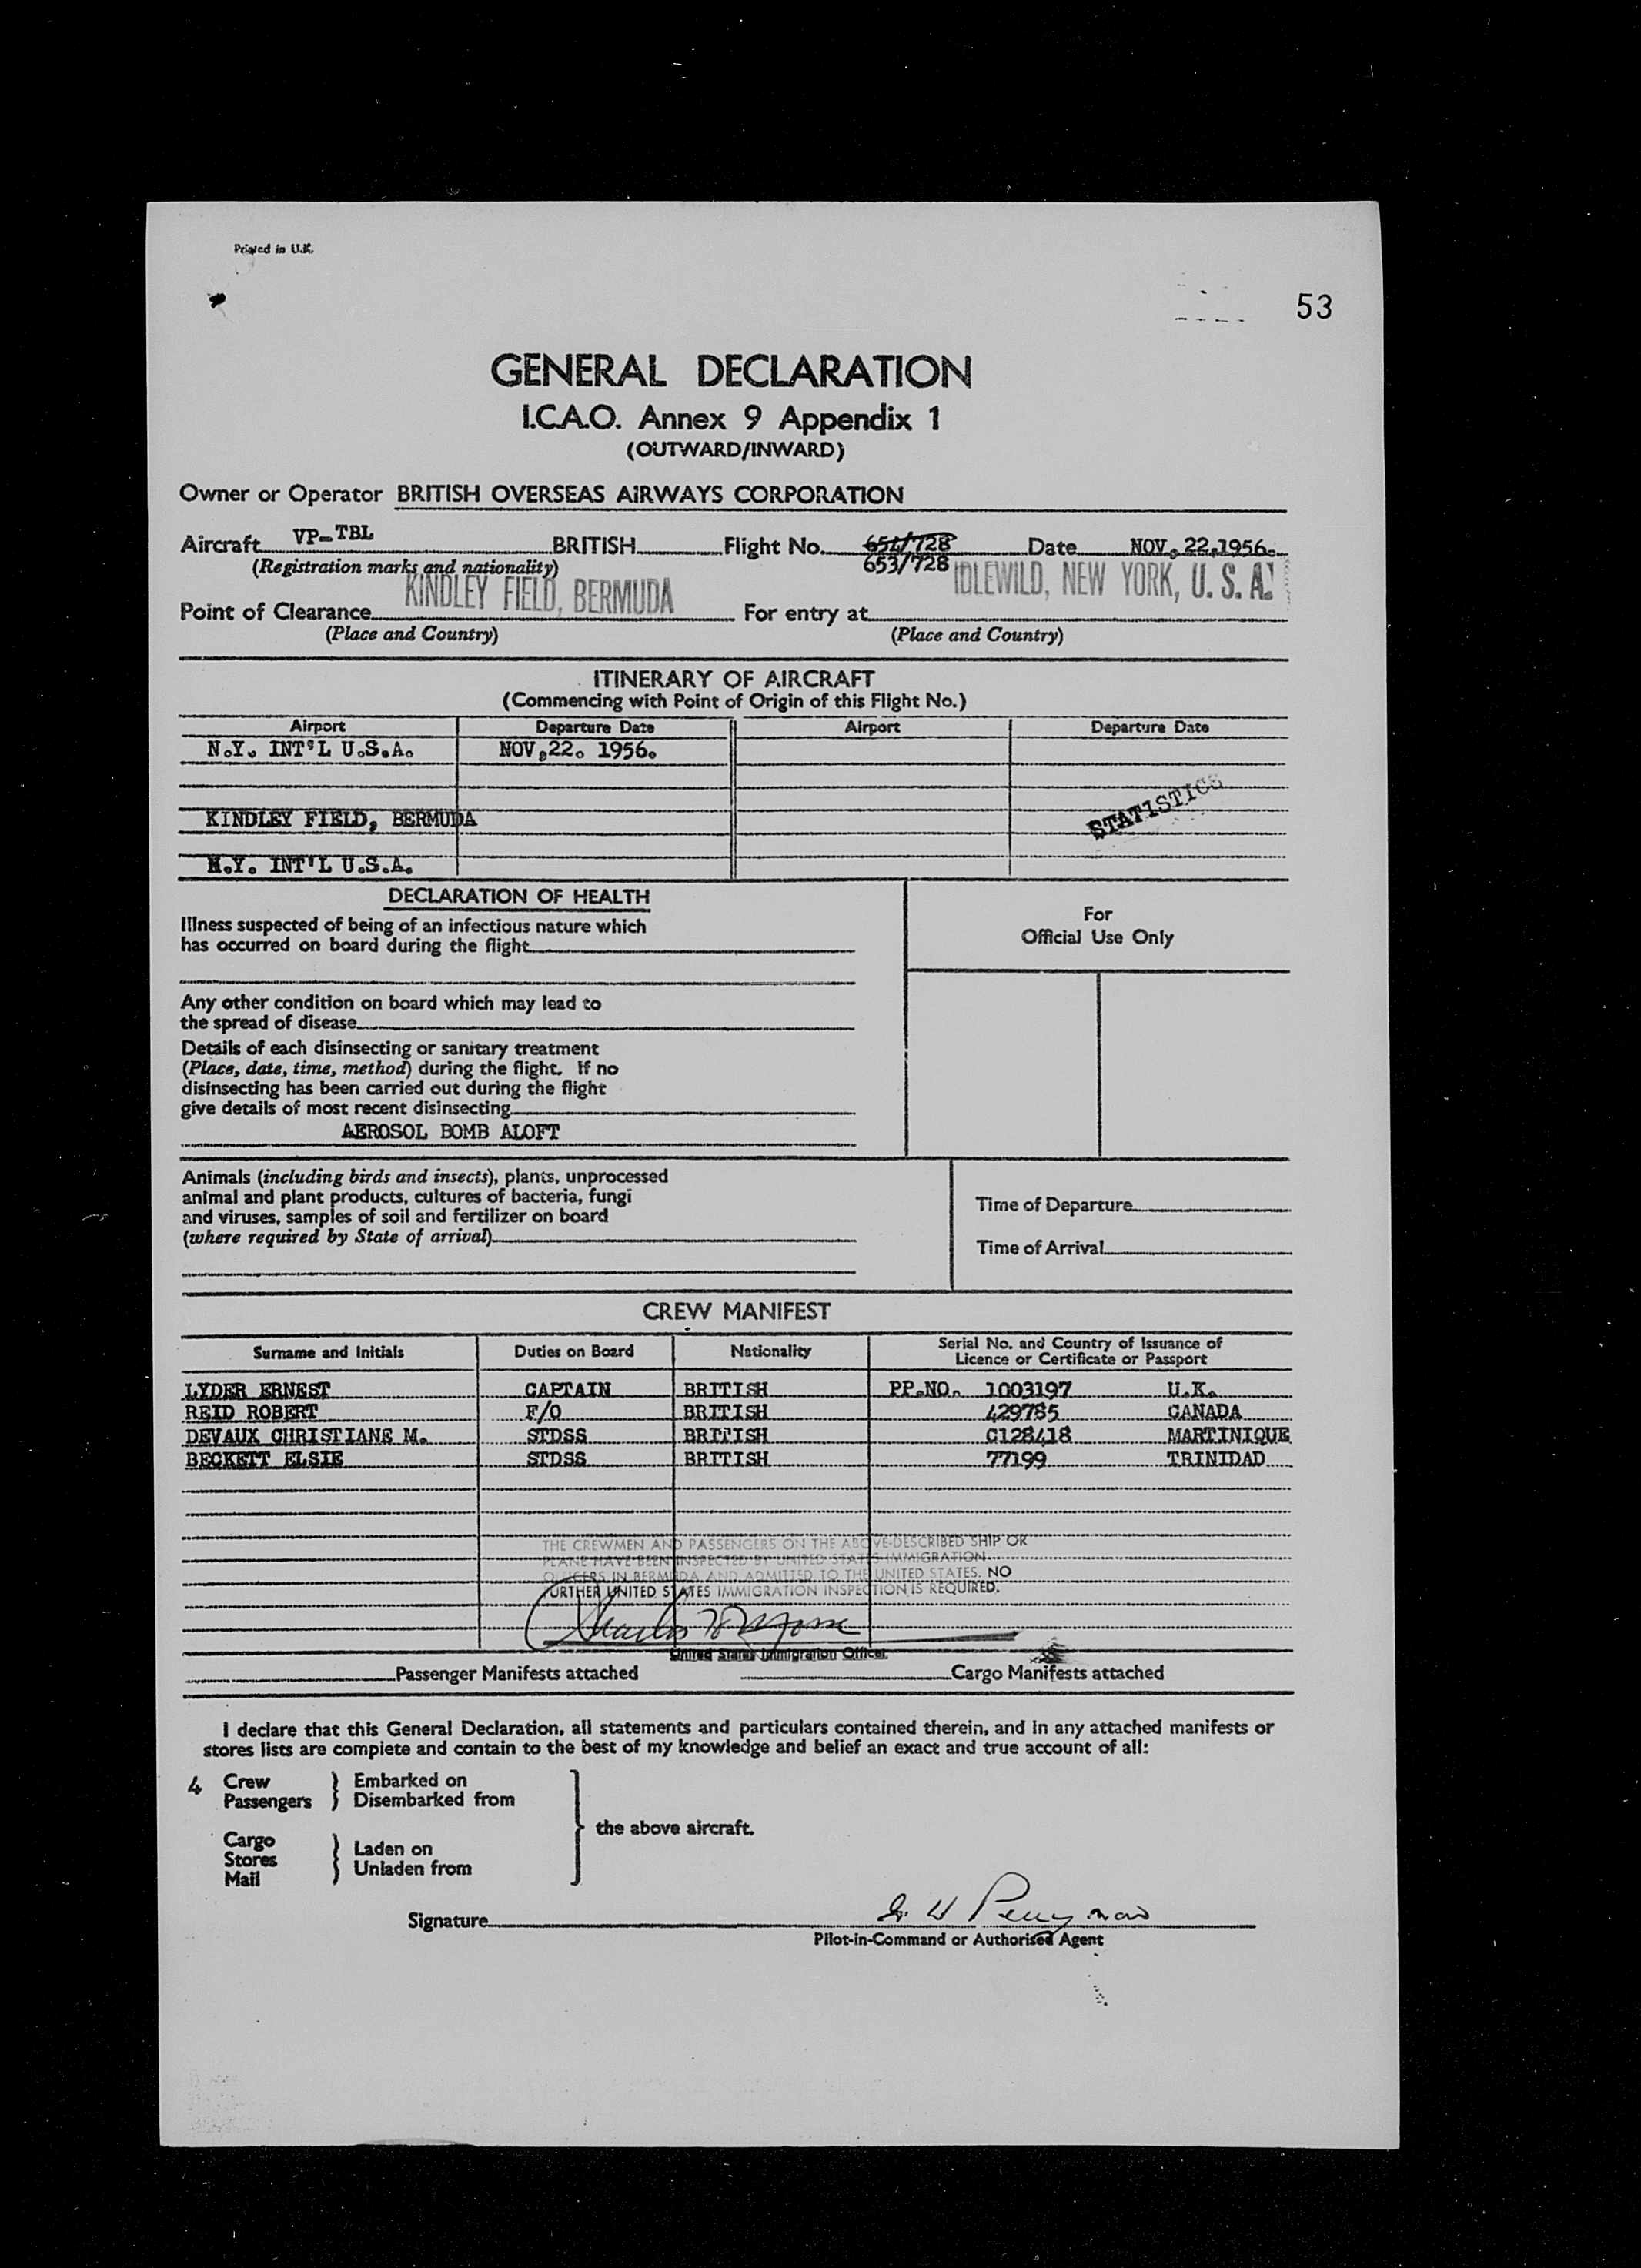 Printed in U.K.
53
GENERAL DECLARATION
I.C.A.O. Annex 9 Appendix 1
(OUTWARD/INWARD)
Owner or Operator BRITISH OVERSEAS AIRWAYS CORPORATION
Aircraft VP-TBL BRITISH Flight No. 651/728 Date NOV. 22.1956.
(Registration marks and nationality) 653/728
KINDLEY FIELD, BERMUDA IDLEWILD, NEW YORK, U.S.A.
Point of Clearance For entry at
(Place and Country) (Place and Country)
ITINERARY OF AIRCRAFT
(Commencing with Point of Origin of this Flight No.)
Airport Departure Date Airport Departure Date
N.Y. INT'L U.S.A. NOV.22. 1956.
STATISTICS
KINDLEY FIELD, BERMUDA
N.Y. INT'L U.S.A.
DECLARATION OF HEALTH
For
Official Use Only
Illness suspected of being of an infectious nature which
has occurred on board during the flight
Any other condition on board which may lead to
the spread of disease
Details of each disinsecting or sanitary treatment
(Place, date, time, method) during the flight. If no
disinsecting has been carried out during the flight
give details of most recent disinsecting
AEROSOL BOMB ALOFT
Animals (including birds and insects), plants, unprocessed
animal and plant products, cultures of bacteria, fungi
and viruses, samples of soil and fertilizer on board
(where required by State of arrival)
Time of Departure
Time of Arrival
CREW MANIFEST
Surname and Initials Duties on Board Nationality Serial No. and Country of Issuance of
Licence or Certificate or Passport
LYDER ERNEST CAPTAIN BRITISH PP.NO. 1003197 U.K.
REID ROBERT F/O BRITISH 429785 CANADA
DEVAUX CHRISTIANE M. STDSS BRITISH C128418 MARTINIQUE
BECKETT ELSIE STDSS BRITISH 77199 TRINIDAD
THE CREWMEN AND PASSENGERS ON THE ABOVE-DESCRIBED SHIP OR
PLANE HAVE BEEN INSPECTED BY UNITED STATES IMMIGRATION
OFFICERS IN BERMUDA AND ADMITTED TO THE UNITED STATES. NO
FURTHER UNITED STATES IMMIGRATION INSPECTION IS REQUIRED.
United States Immigration Officer.
Passenger Manifests attached Cargo Manifests attached
I declare that this General Declaration, all statements and particulars contained therein, and in any attached manifests or
stores lists are complete and contain to the best of my knowledge and belief an exact and true account of all:
4 Crew Embarked on
Passengers Disembarked from
the above aircraft.
Cargo Laden on
Stores Unladen from
Mail
Signature
Pilot-in-Command or Authorised Agent